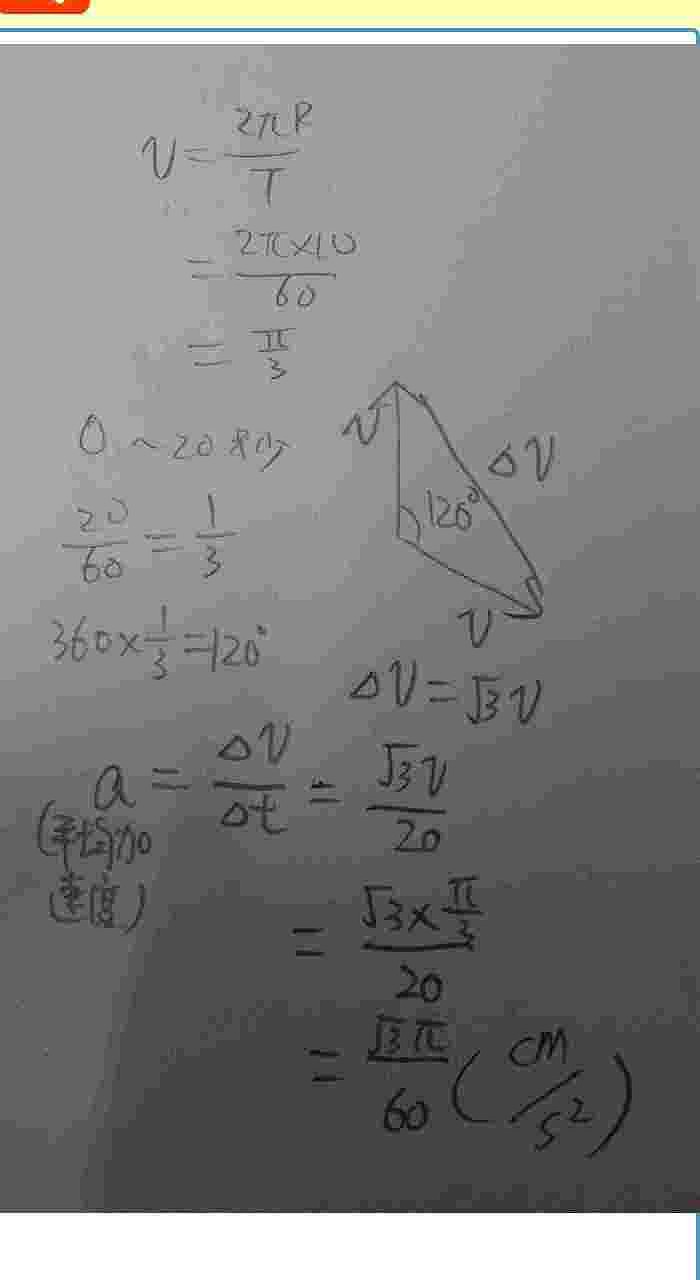 V = 2πR/T
= 2π×10/60
= π/3
0 ~ 20秒
20/60 = 1/3
360×1/3=120°
V
ΔV
120°
V
ΔV=√3V
a = ΔV/Δt = √3V/20
(平均加
速度)
= √3×π/3/20
= √3π/60 (cm/s²)